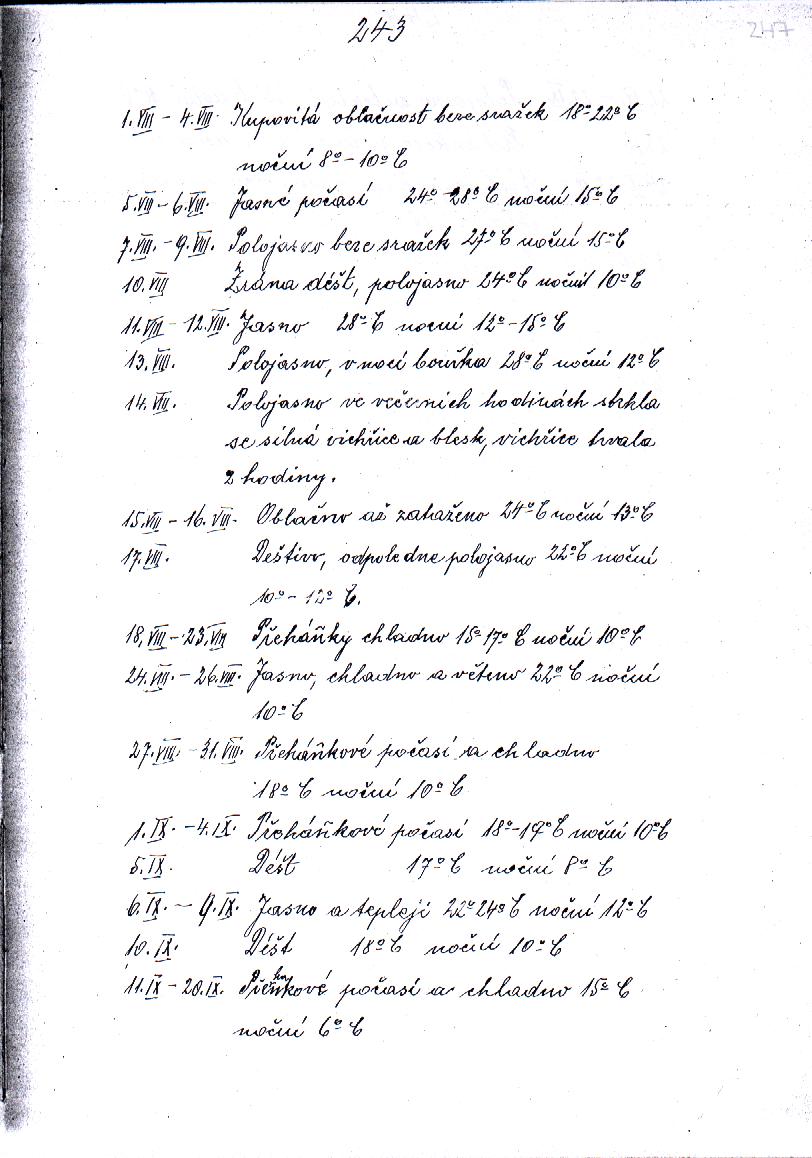 243
247
1.VIII – 4.VIII. Kupovitá oblačnost beze srážek 18º-22º C
noční 8º – 10º C
5.VIII – 6.VIII. Jasné počasí 24º-28º C noční 15º C
7.VIII. – 9.VIII. Polojasno beze sražek 27º C noční 15º C
10.VIII Zrána déšt, polojasno 24º C noční 10º C
11.VIII – 12.VIII. Jasno 28º C nocní 12º – 15º C
13.VIII. Polojasno, v noci bouřka 28º C noční 12º C
14.VIII. Polojasno ve večerních hodinách strhla
se silná vichřice a blesk, vichřice trvala
2 hodiny.
15.VIII – 16.VIII. Oblačno až zataženo 24º C noční 13º C
17.VIII. Deštivo, odpoledne polojasno 22º C noční
10º – 12º C.
18.VIII – 23.VIII Přeháňky chladno 15º-17º C noční 10º C
24.VIII. – 26.VIII. Jasno, chladno a větrno 22º C noční
10º C
27.VIII. – 31.VIII. Přeháňkové počasí a chladno
18º C noční 10º C
1.IX. – 4.IX. Přeháňkové počasí 18º-19º C noční 10º C
5.IX. Déšt 17º C noční 8º C
6.IX. – 9.IX. Jasno a tepleji 22º-24º C noční 12º C
10.IX. Déšt 18º C noční 10º C
11.IX – 20.IX. Přeháňkové počasí a chladno 15º C
noční 6º C